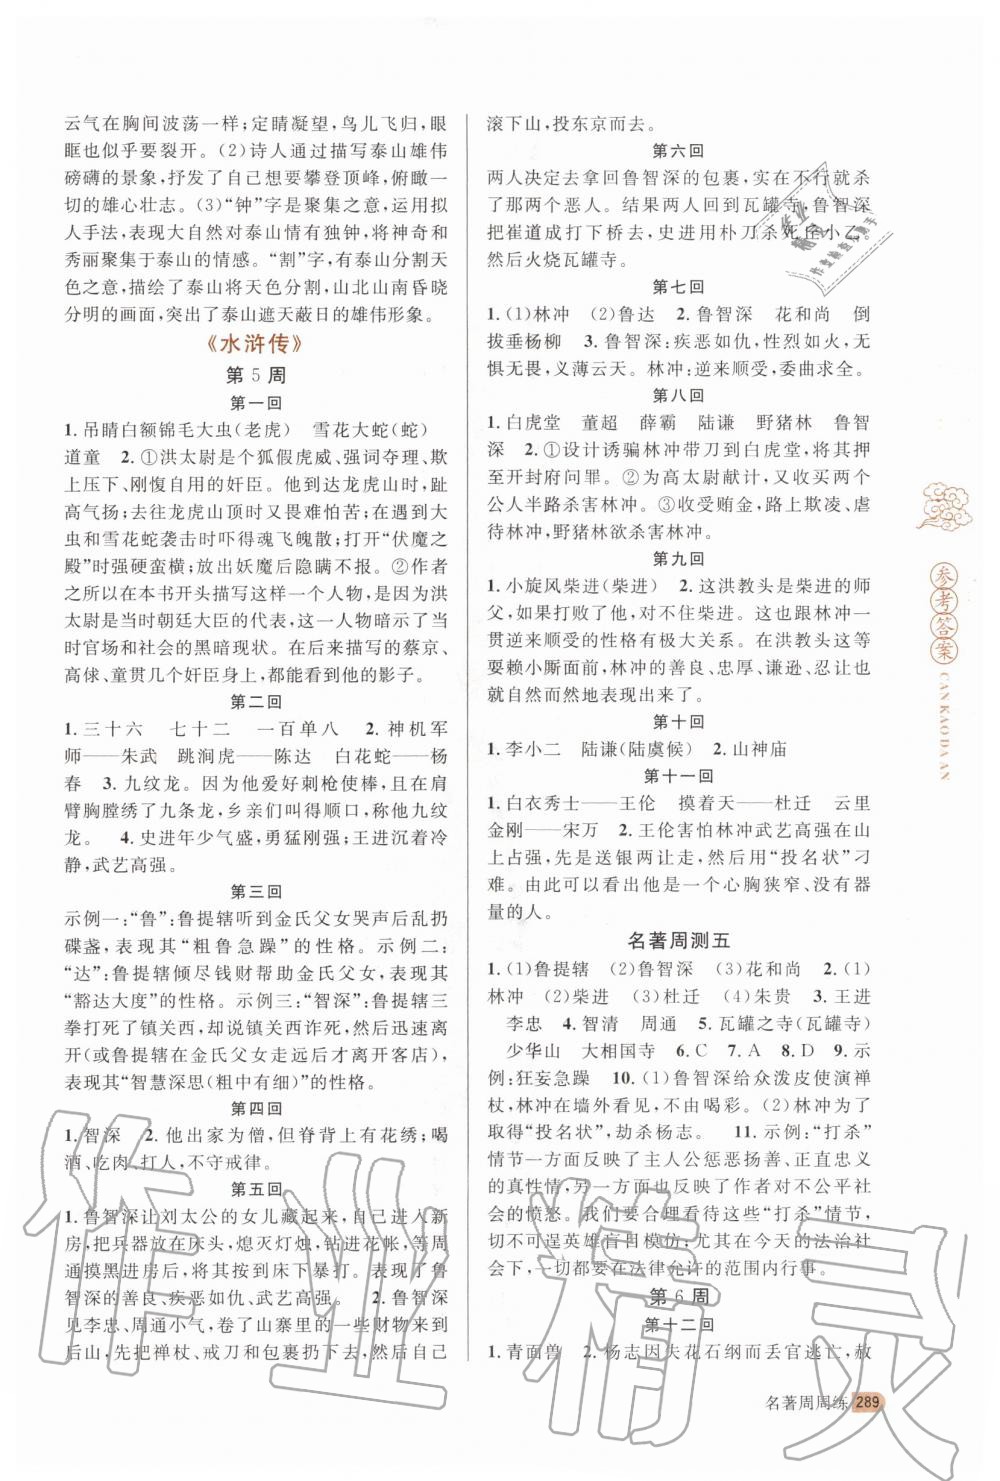 云气在胸间波荡一样；定睛凝望，鸟儿飞归，眼
眶也似乎要裂开。(2)诗人通过描写泰山雄伟
磅礴的景象，抒发了诗人想要攀登顶峰，俯瞰一
切的雄心壮志。(3)“钟”字是聚集之意，运用拟
人手法，表现大自然对泰山情有独钟，将神奇和
秀丽聚集于泰山的情感。“割”字，有泰山分割天
色之意，描绘了泰山将天色分割，山北山南昏晓
分明的画面，突出了泰山遮天蔽日的雄伟形象。
《水浒传》
第 5 周
第一回
1.吊睛白额锦毛大虫(老虎) 雪花大蛇(蛇)
道童 2.①洪太尉是个狐假虎威、强词夺理、欺
上压下、刚愎自用的奸臣。他到龙虎山时，趾
高气扬；去往龙虎山顶时又畏难怕苦；在遇到大
虫和雪花蛇袭击时吓得魂飞魄散；打开“伏魔之
殿”时强硬蛮横；放出妖魔后隐瞒不报。②作者
之所以在本书开头描写这样一个人物，是因为洪
太尉是当时朝廷大臣的代表，这一人物影射了当
时官场和社会的黑暗现状。后面描写的蔡京、
高俅、童贯几个奸臣身上，都能看到他的影子。
第二回
1.三十六 七十二 一百单八 2.神机军
师——朱武 跳涧虎——陈达 白花蛇——杨
春 3.九纹龙。因为他爱好刺枪使棒，而且肩
臂胸膛绣了九条龙，乡亲们叫得顺口，称他九纹
龙。 4.史进年少气盛，勇猛刚强；王进沉着冷
静，武艺高强。
第三回
示例一：“鲁”：鲁提辖听到金氏父女哭声后乱扔
碟盏，表现其“粗鲁急躁”的性格。示例二：
“达”：鲁提辖倾尽钱财帮助金氏父女，表现其
“豁达大度”的性格。示例三：“智深”：鲁提辖三
拳打死了镇关西，却说镇关西诈死，然后借机离
开(或鲁提辖在金氏父女走远后才离开客店)，
表现其“智慧深思(粗中有细)”的性格。
第四回
1.智深 2.他出家为僧，但脊背上有花绣；喝
酒、吃肉、打人，不守戒律。
第五回
1.鲁智深让刘太公的女儿藏起来，自己进入新
房，把兵器放在床头，熄灭灯烛，钻进花帐，等周
通摸黑进房后，将其按在床下暴打。表现了鲁
智深的善良、疾恶如仇、武艺高强。 2.鲁智深
见李忠、周通小气，卷了山寨里的一些财物来到
后山，先把禅杖、戒刀和包裹扔下去，然后自己
滚下山，投东京而去。
第六回
两人决定去拿回鲁智深的包裹，实在不行就杀
了那两个恶人。结果两人回到瓦罐寺，鲁智深
把崔道成打下桥去，史进用朴刀杀死丘小乙。
然后火烧瓦罐寺。
第七回
1.(1)林冲 (2)鲁达 2.鲁智深 花和尚 倒
拔垂杨柳 3.鲁智深：疾恶如仇，性烈如火，无
惧无畏，义薄云天。林冲：逆来顺受，委曲求全。
第八回
1.白虎堂 董超 薛霸 陆谦 野猪林 鲁智
深 2.①设计诱骗林冲带刀到白虎堂，将其押
至开封府问罪。②为高太尉献计，又收买两个
公人半路杀害林冲。③收受贿金，路上欺凌、虐
待林冲，野猪林欲杀害林冲。
第九回
1.小旋风柴进(柴进) 2.这洪教头是柴进的师
父，如果打败了他，对不住柴进。这也跟林冲一
贯逆来顺受的性格有极大关系。在洪教头这等
耍赖小厮面前，林冲的善良、忠厚、谦逊、忍让就
自然而然地表现出来了。
第十回
1.李小二 陆谦(陆虞候) 2.山神庙
第十一回
1.白衣秀士——王伦 摸着天——杜迁 云里
金刚——宋万 2.王伦害怕林冲武艺高强在山
上占强，先是送银两让走，然后用“投名状”刁
难。由此可以看出他是一个心胸狭窄、没有器
量的人。
名著周测五
1.(1)鲁提辖 (2)鲁智深 (3)花和尚 2.(1)
林冲 (2)柴进 (3)杜迁 (4)朱贵 3.王进
李忠 4.智清 周通 5.瓦罐之寺(瓦罐寺)
少华山 大相国寺 6.C 7.A 8.D 9.示
例：狂妄急躁 10.(1)鲁智深给众泼皮使演禅
杖，林冲在墙外看见，不由喝彩。(2)林冲为了
取得“投名状”，劫杀杨志。 11.示例：“打杀”
情节一方面反映了主人公惩恶扬善、正直忠义
的真性情，另一方面也反映了作者对不公平社
会的愤怒。我们要合理看待这些“打杀”情节，
切不可逞英雄盲目模仿；尤其在今天的法治社
会下，一切都要在法律允许的范围内行事。
第 6 周
第十二回
1.青面兽 2.杨志因失花石纲而丢官逃亡，赦
参考答案
CANKAODAAN
名著周周练 289
作业精灵